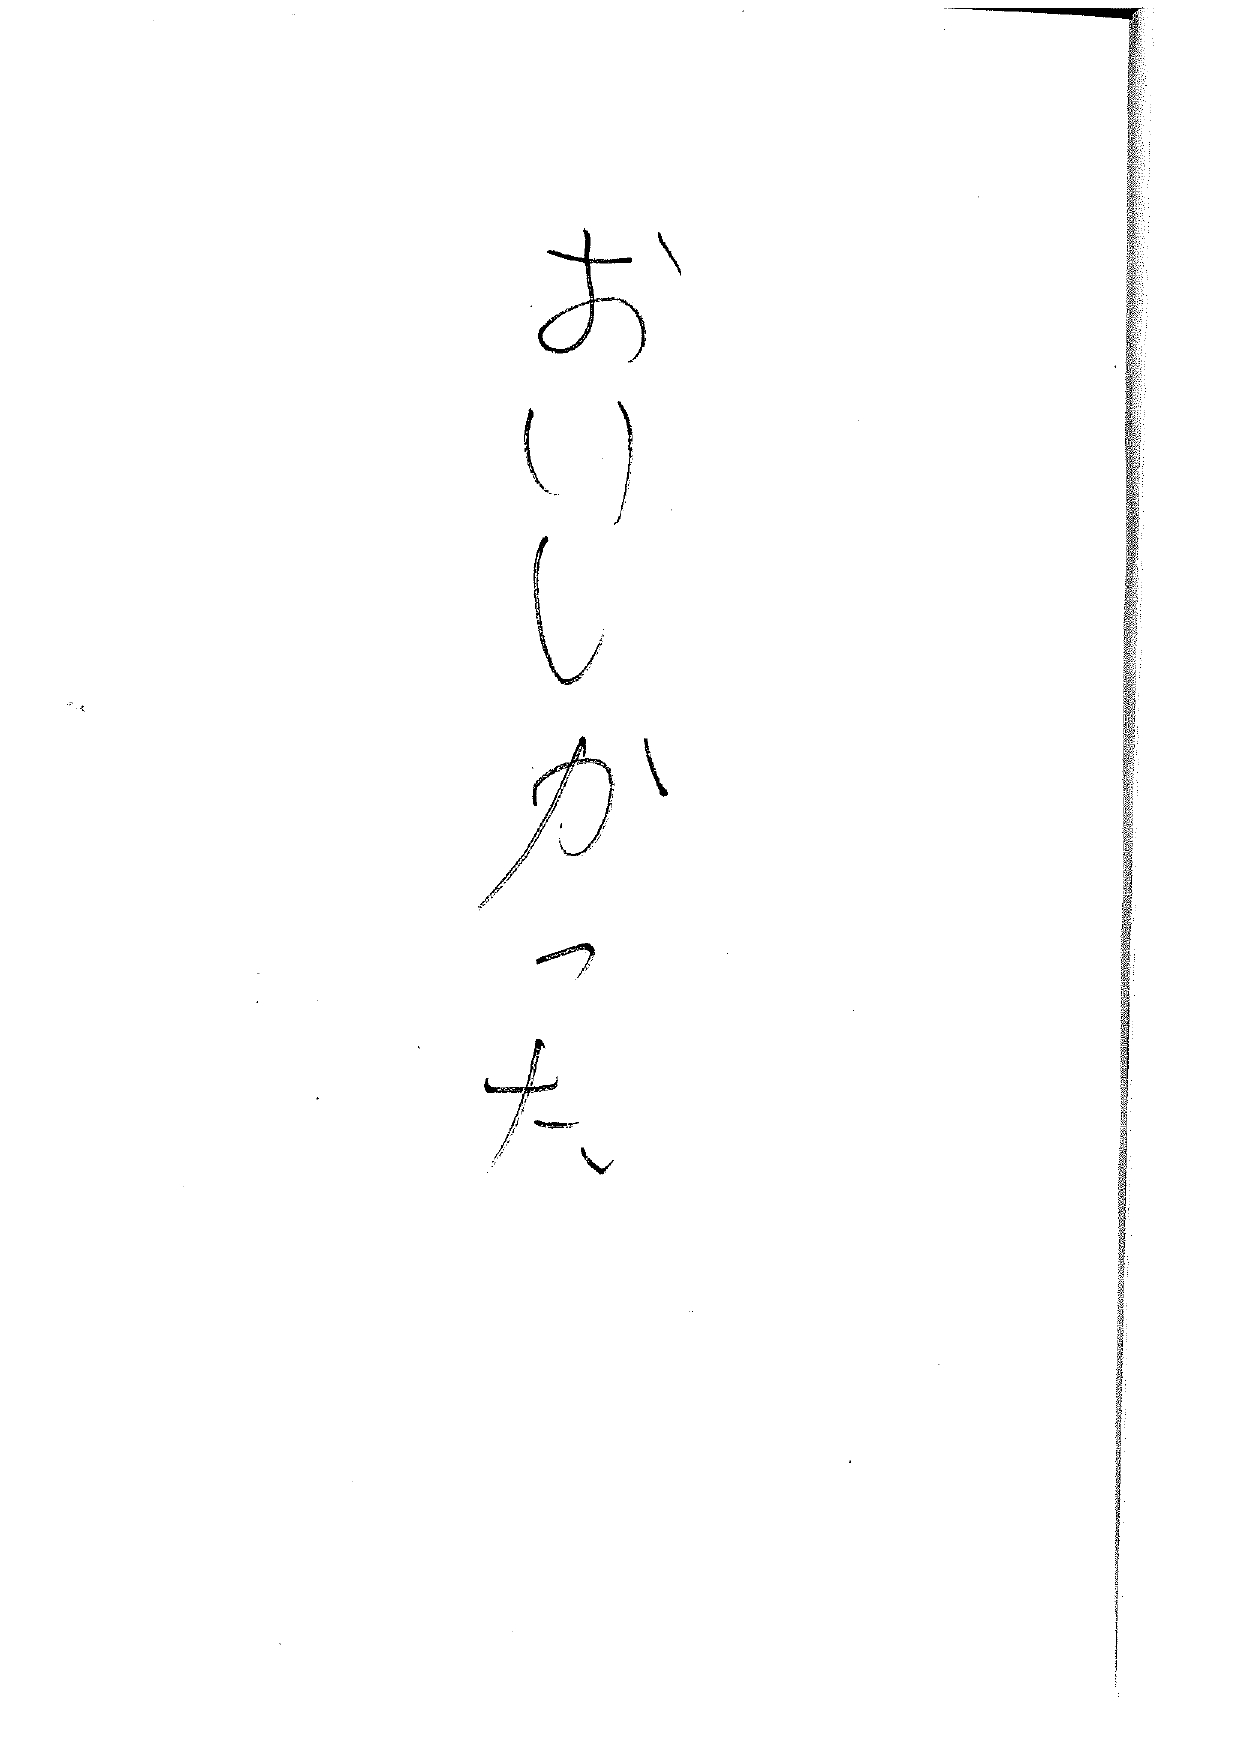 おいしかった